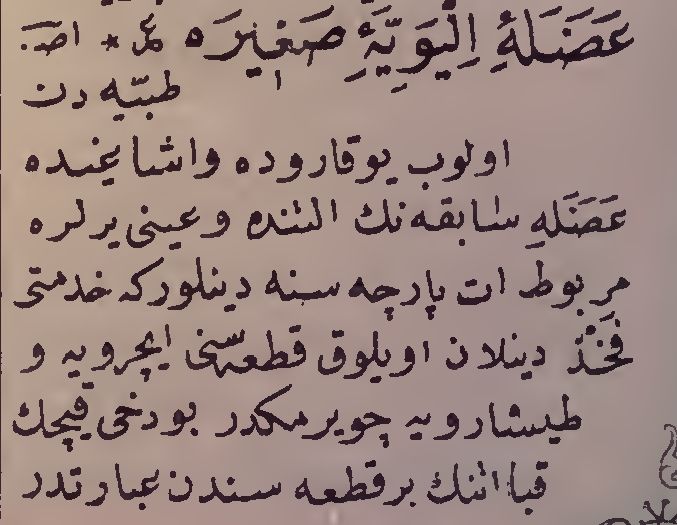 عَضَلَهٔ اِلْيَوِيَّهٔ صَغِيرَه عر * اصـ
طبّيه دن
اولوب يوقاروده واشاغيده
عَضَلَهِ سابقه نك التنده وعينى يرلره
مربوط ات پارچه سنه دينلوركه خدمتى
فَخْذ دينلان اويلوق قطعه سنى ايچرويه و
طيشارويه چويرمكدر بودخى قيچك
قبااتنك برقطعه سندن عبارتدر